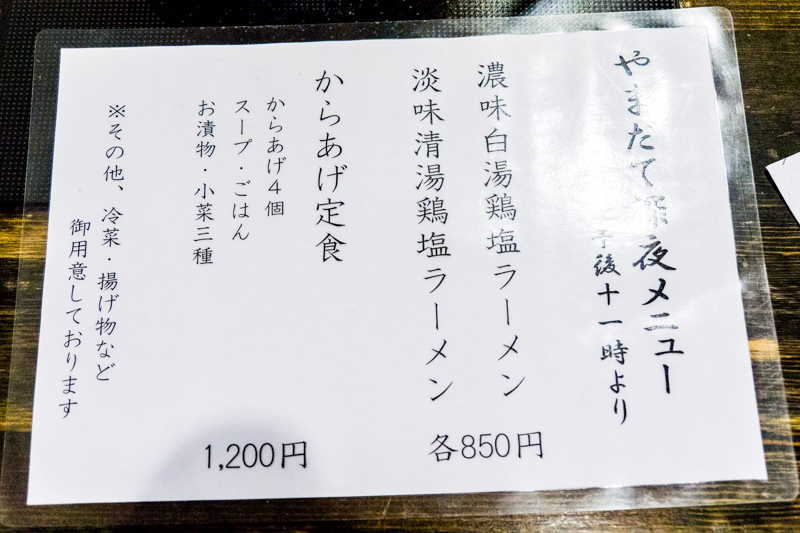 やまたて深夜メニュー
午後十一時より
濃味白湯鶏塩ラーメン
淡味清湯鶏塩ラーメン
各850円
からあげ定食
からあげ4個
スープ・ごはん
お漬物・小菜三種
1,200円
※その他、冷菜・揚げ物など
御用意しております